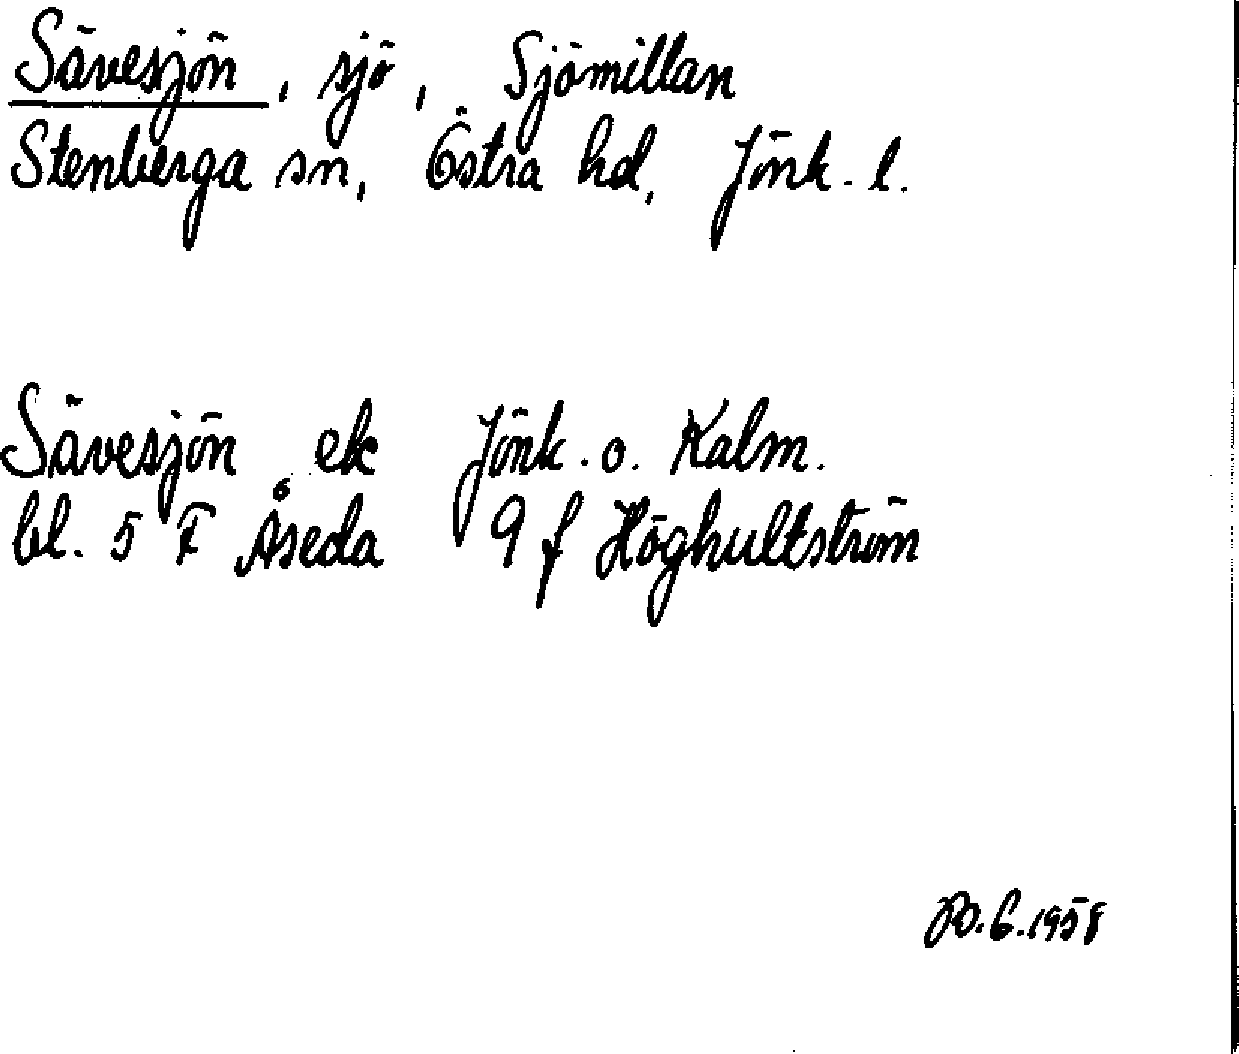 Sävesjön, sjö, Sjömillan
Stenberga sn, Östra hd, Jönk. l.
Sävesjön ek Jönk. o. Kalm.
bl. 5 F Åseda 9 f Höghultström
6.1958